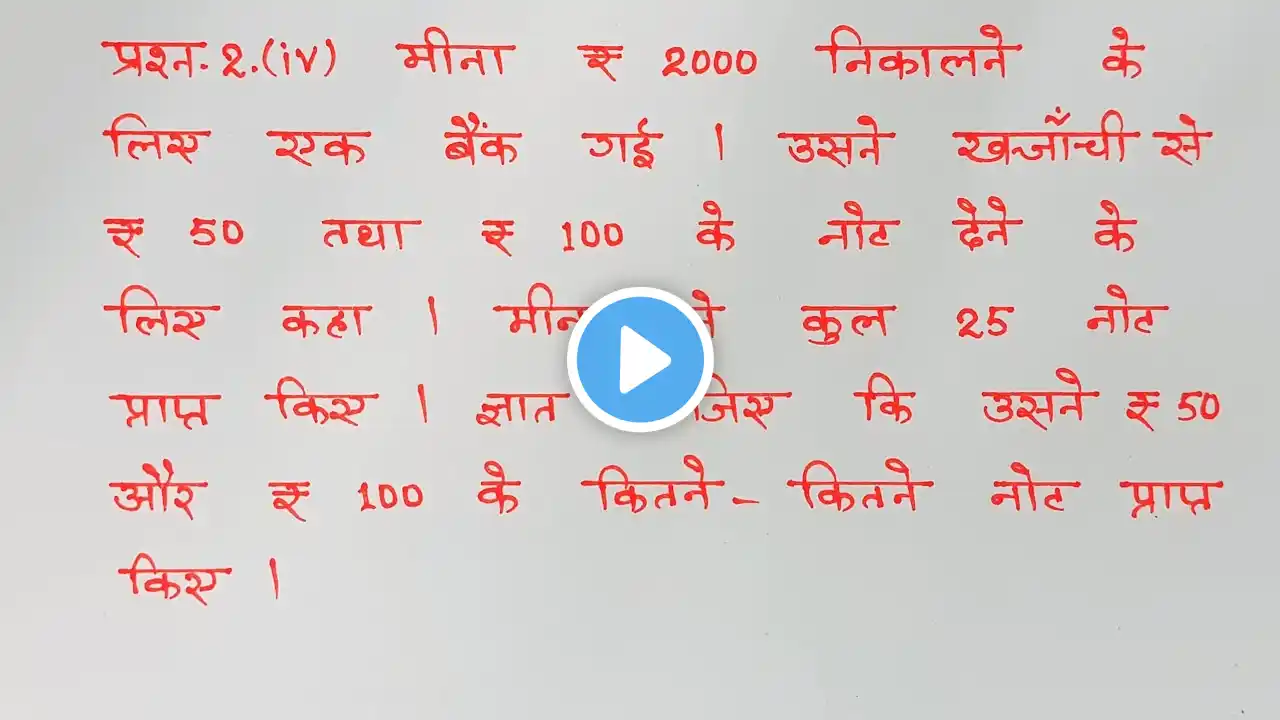 प्रश्न. 2.(iv) मीना ₹ 2000 निकालने के
लिए एक बैंक गई । उसने खजाँची से
₹ 50 तथा ₹ 100 के नोट देने के
लिए कहा । कुल 25 नोट
प्राप्त किए । ज्ञात कि उसने ₹ 50
और ₹ 100 के कितने - कितने नोट प्राप्त
किए ।